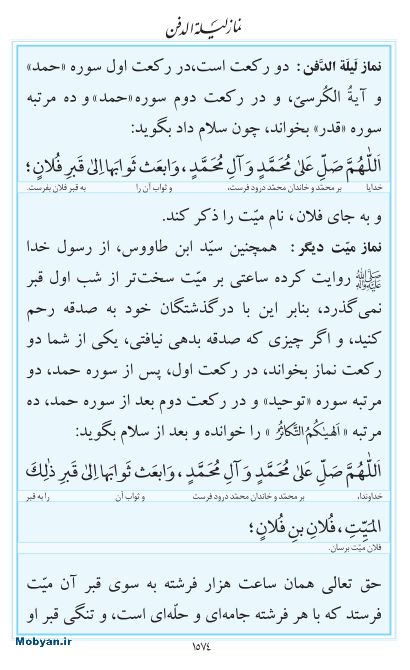 نماز لیلة الدفن
نماز لَیلَة الدَّفن: دو رکعت است، در رکعت اول سوره «حمد»
و آیةُ الکُرسیّ، و در رکعت دوم سوره «حمد» و ده مرتبه
سوره «قدر» بخواند، چون سلام داد بگوید:
اَللّٰهُمَّ صَلِّ عَلیٰ مُحَمَّدٍ وَ آلِ مُحَمَّدٍ، وَ ابعَث ثَوابَها اِلیٰ قَبرِ فُلانٍ؛
خدایا بر محمّد و خاندان محمّد درود فرست، و ثواب آن را به قبر فلان بفرست.
و به جای فلان، نام میّت را ذکر کند.
نماز میّت دیگر: همچنین سیّد ابن طاووس، از رسول خدا
ﷺ روایت کرده ساعتی بر میّت سخت‌تر از شب اول قبر
نمی‌گذرد، بنابر این با درگذشتگان خود به صدقه رحم
کنید، و اگر چیزی که صدقه بدهی نیافتی، یکی از شما دو
رکعت نماز بخواند، در رکعت اول، پس از سوره حمد، دو
مرتبه سوره «توحید» و در رکعت دوم بعد از سوره حمد، ده
مرتبه «اَلهیٰکُمُ التَّکاثُرُ» را خوانده و بعد از سلام بگوید:
اَللّٰهُمَّ صَلِّ عَلیٰ مُحَمَّدٍ وَ آلِ مُحَمَّدٍ، وَ ابعَث ثَوابَها اِلیٰ قَبرِ ذٰلِكَ
خداوندا، بر محمّد و خاندان محمّد درود فرست و ثواب آن را به قبر
المَیِّتِ، فُلانِ بنِ فُلانٍ؛
فلان میّت برسان.
حق تعالی همان ساعت هزار فرشته به سوی قبر آن میّت
فرستد که با هر فرشته جامه‌ای و حلّه‌ای است، و تنگی قبر او
Mobyan.ir
١٥٧٤